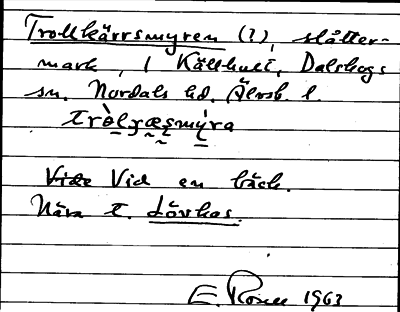 Trollkärrsmyren (?), slåtter-
mark, 1 Källhult, Dalskogs
sn. Nordals hd. Älvsb. l.
tròlɽæʂmýra
Vid en bäck.
Nära t. Lövhas.
E. Rosell 1963